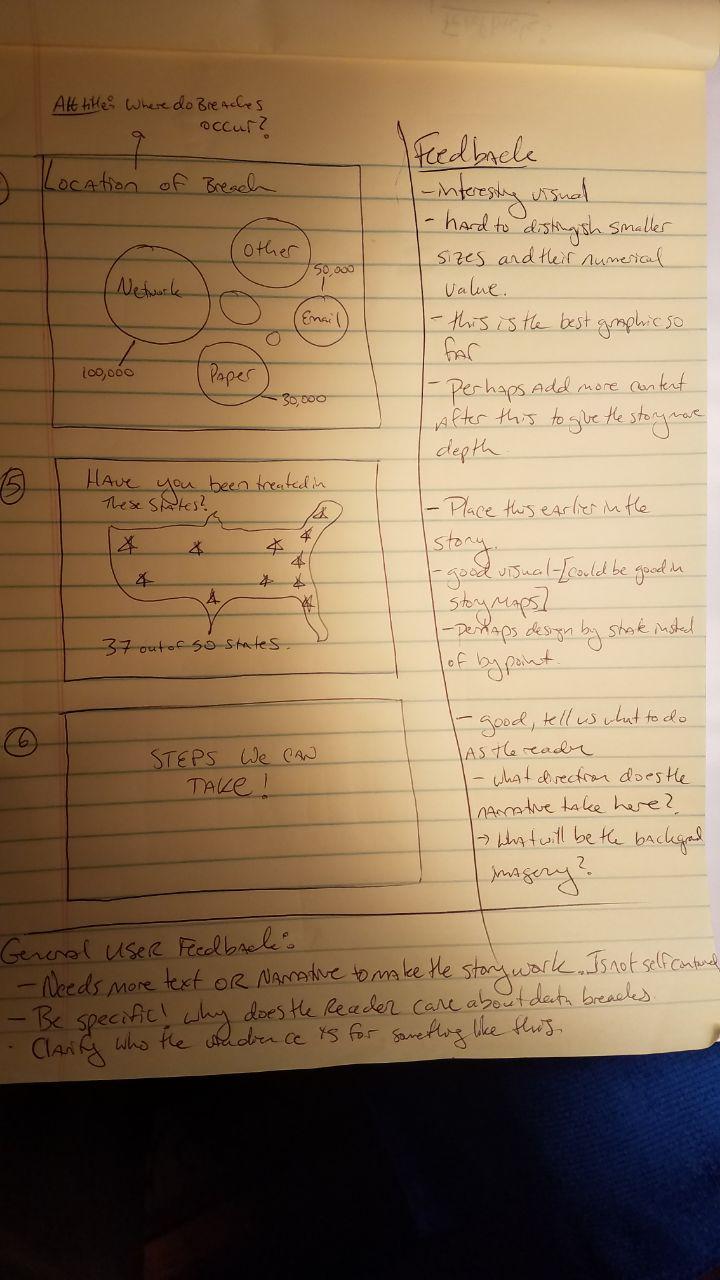 Alt title: Where do Breaches
occur?
Location of Breach
Other
50,000
Network
Email
100,000
Paper
30,000
Feedback
- interesting visual
- hard to distingish smaller
sizes and their numerical
value.
- this is the best graphic so
far
- Perhaps add more content
after this to give the story more
depth.
5
Have you been treated in
these states?
37 out of 50 states.
- Place this earlier in the
story.
- good visual - [could be good in
story maps]
- Perhaps design by state instead
of by point.
6
STEPS WE CAN
TAKE!
- good, tell us what to do
as the reader
- what direction does the
narrative take here?
→ What will be the background
imagery?
General User Feedback:
- Needs more text OR Narrative to make the story work. Is not self contained
- Be specific! why does the Reader care about data breaches.
· Clarify who the audience is for something like this.